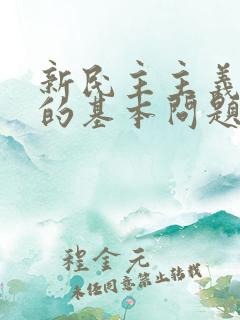 新民主主義
的基本問題
程金元
未经同意禁止转载